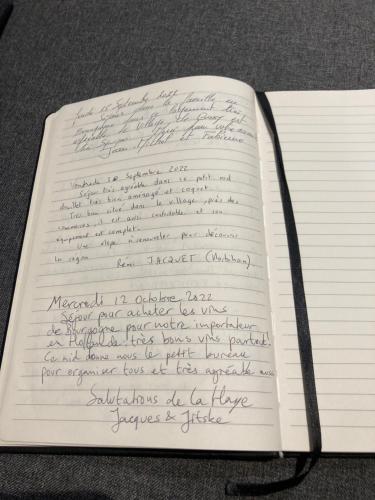 Jeudi 15 Septembre 2022
Séjour dans la famille en
Bourgogne dans ce logement très
agréable. Le village de
est
Un Séjour
Jean Michel et Fabienne
Vendredi Septembre 2022
Séjour très agréable dans ce petit nid
douillet très bien aménagé et coquet.
Très bien situé dans le village, près des
commerces, il est aussi confortable et son
équipement est complet.
Une étape à renouveler pour découvrir
la région
Rémi JACQUET (Morbihan)
Mercredi 12 Octobre 2022
Séjour pour acheter les vins
de Bourgogne pour notre importateur
en Hollande. très bons vins partout!
Ce nid donne nous le petit bureau
pour organiser tous et très agréable aussi
Salutations de la Haye
Jacques & Jitske